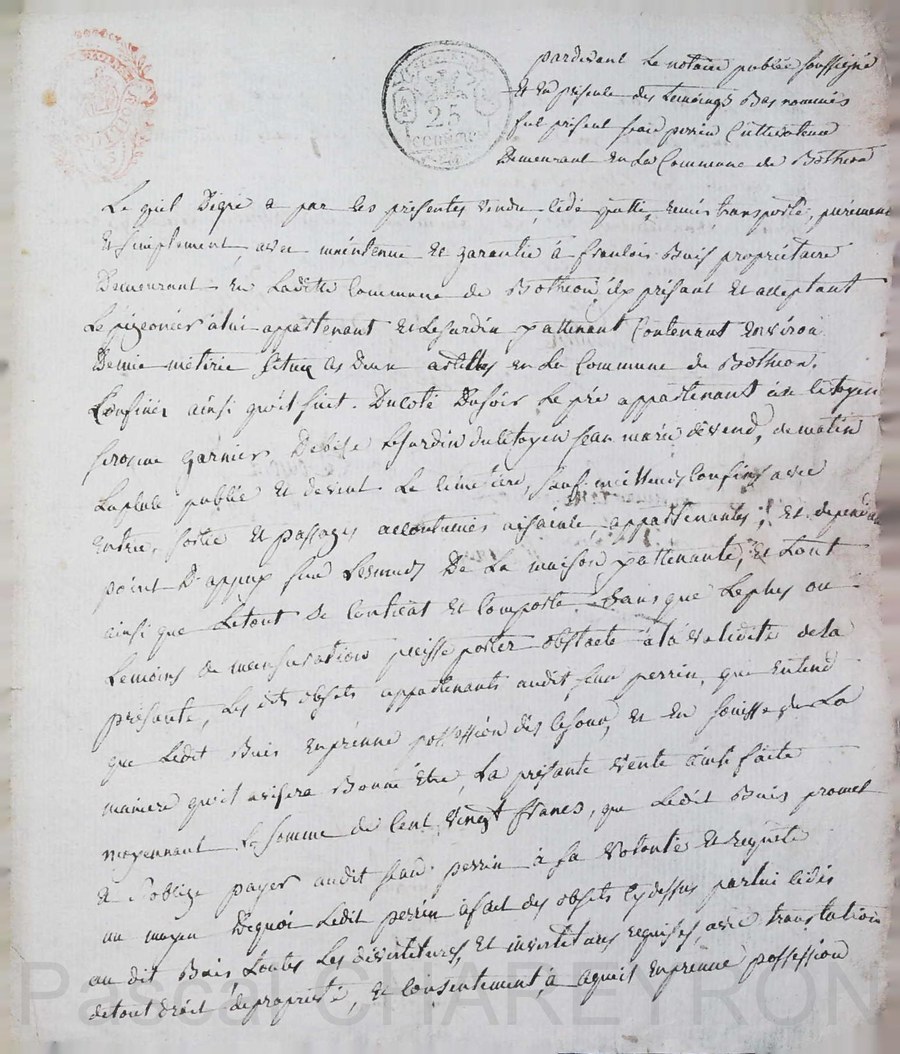 25
CENTIMES
pardevant Le notaire publiée soussigné
et En présence des temoings Bas nommés
fut présent Cultivateur
Demeurant En La Commune de Bothéon
Le quel Digré a par les présentes vendu, cédé quitté, remis transporté, purement
Et simplement, avec maintenue Et garantie à françois Buis propriétaire
Demeurant En Ladite Commune de Bothéon icy présant Et acceptant
Le pigeonnier à lui appartenant Et Le Jardin y attenant Contenant Environ
Demie métérie En La Commune de Bothéon,
Confinés ainsi qu'il suit. Du coté Du soir Le pré appartenant au citoyen
garnier De bise Le Jardin du Citoyen jean marie devend, de matin
La place publiée Et de vent Le cimetiere, sauf meilleurs Confins avec
Entrée, sortie Et passages accoutumés aisance appartenantes, Et dépend
point D'appuy sur Les murs De La maison y attenante, Et tout
ainsi que Le tout Se Contient Et Comporte, Sans que Le plus ou
Le moins de mensuration puisse porter obstacle à la validité de la
présante, Les dits objets appartenants audit perrin, que Entend
que Ledit Buis En prenne possession dès ce jour, Et En jouisse de La
maniere qu'il avisera Bonne Être, La présante vente ainsi faite
moyennant La somme de Cent vingt francs, que Ledit Buis promet
& s'oblige payer audit perrin à sa volonté Et requete
au moyen De quoi Ledit perrin a fait des objets cy dessus par lui cédés
au dit Buis, toutes Les dévetitures, Et invetitures requises, avec translation
de tout droit de propriété, Et Consentement à a qu'il En prenne possession
Pascal CHAREYRON